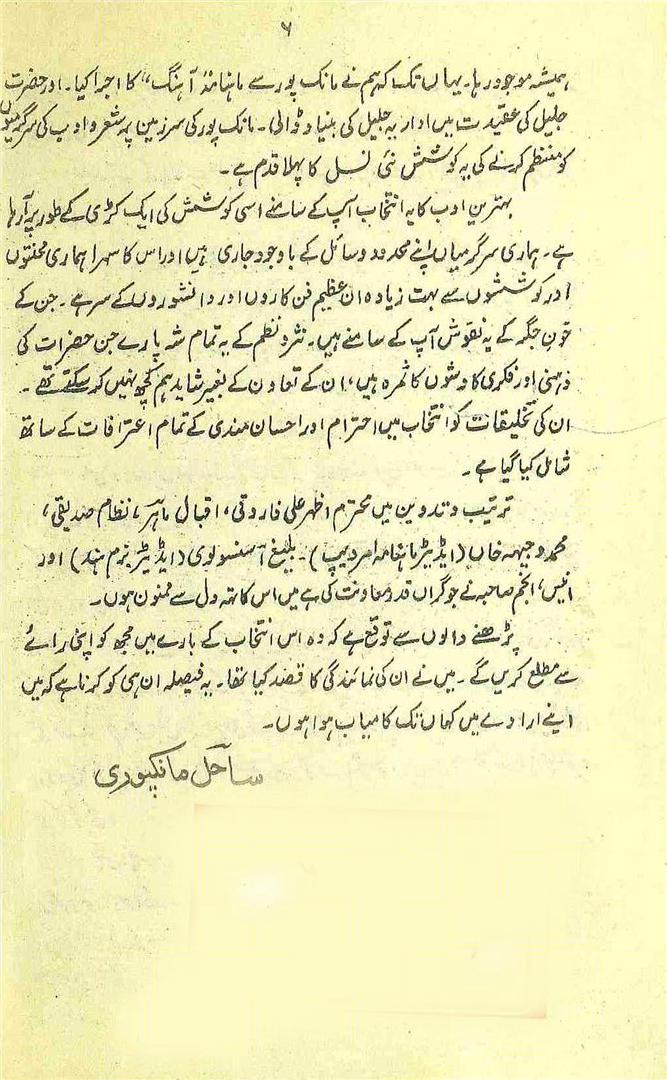 ۶
ہمیشہ موجود رہا۔ یہاں تک کہ ہم نے مانک پور سے ماہنامۂ آہنگ" کا اجرا کیا۔ اور حضرت
جلیل کی عقیدت میں ادارۂ جلیل کی بنیاد ڈالی۔ مانک پور کی سرزمین پر شعر و ادب کی سرگرمیوں
کو منظم کرنے کی یہ کوشش نئی نسل کا پہلا قدم ہے۔
بہترین ادب کا یہ انتخاب آپ کے سامنے اسی کوشش کی ایک کڑی کے طور پر آرہا
ہے۔ ہماری سرگرمیاں اپنے محدود وسائل کے باوجود جاری ہیں اور اس کا سہرا ہماری محنتوں
اور کوششوں سے بہت زیادہ ان عظیم فن کاروں اور دانشوروں کے سر ہے۔ جن کے
خونِ جگر کے یہ نقوش آپ کے سامنے ہیں۔ نثر و نظم کے یہ تمام شہ پارے جن حضرات کی
ذہنی اور فکری کاوشوں کا ثمرہ ہیں، ان کے تعاون کے بغیر شاید ہم کچھ نہیں کر سکتے تھے۔
ان کی تخلیقات کو انتخاب میں احترام اور احسان مندی کے تمام اعترافات کے ساتھ
شامل کیا گیا ہے۔
ترتیب و تدوین میں محترم اظہر علی فاروقی، اقبال ماہر، نظام صدیقی،
محمد وجیہہ خاں (ایڈیٹر ماہنامہ امر دیپ)۔ بلیغ آسنسولوی (ایڈیٹر بزم ہند) اور
انیس، انجم صاحبہ نے جو گراں قدر معاونت کی ہے میں اس کا تہہ دل سے ممنون ہوں۔
پڑھنے والوں سے توقع ہے کہ وہ اس انتخاب کے بارے میں مجھ کو اپنی رائے
سے مطلع کریں گے۔ میں نے ان کی نمائندگی کا قصد کیا تھا۔ یہ فیصلہ ان ہی کو کرنا ہے کہ میں
اپنے ارادے میں کہاں تک کامیاب ہوا ہوں۔
ساحل مانکپوری